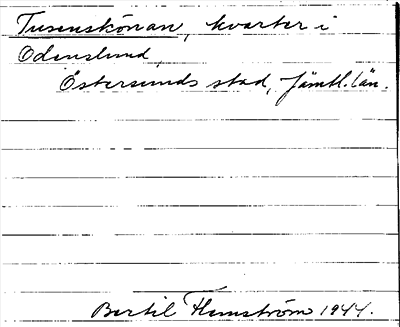 Tusenskönan, kvarter i
Odenslund,
Östersunds stad, Jämtl. län.
Bertil Flemström 1944.